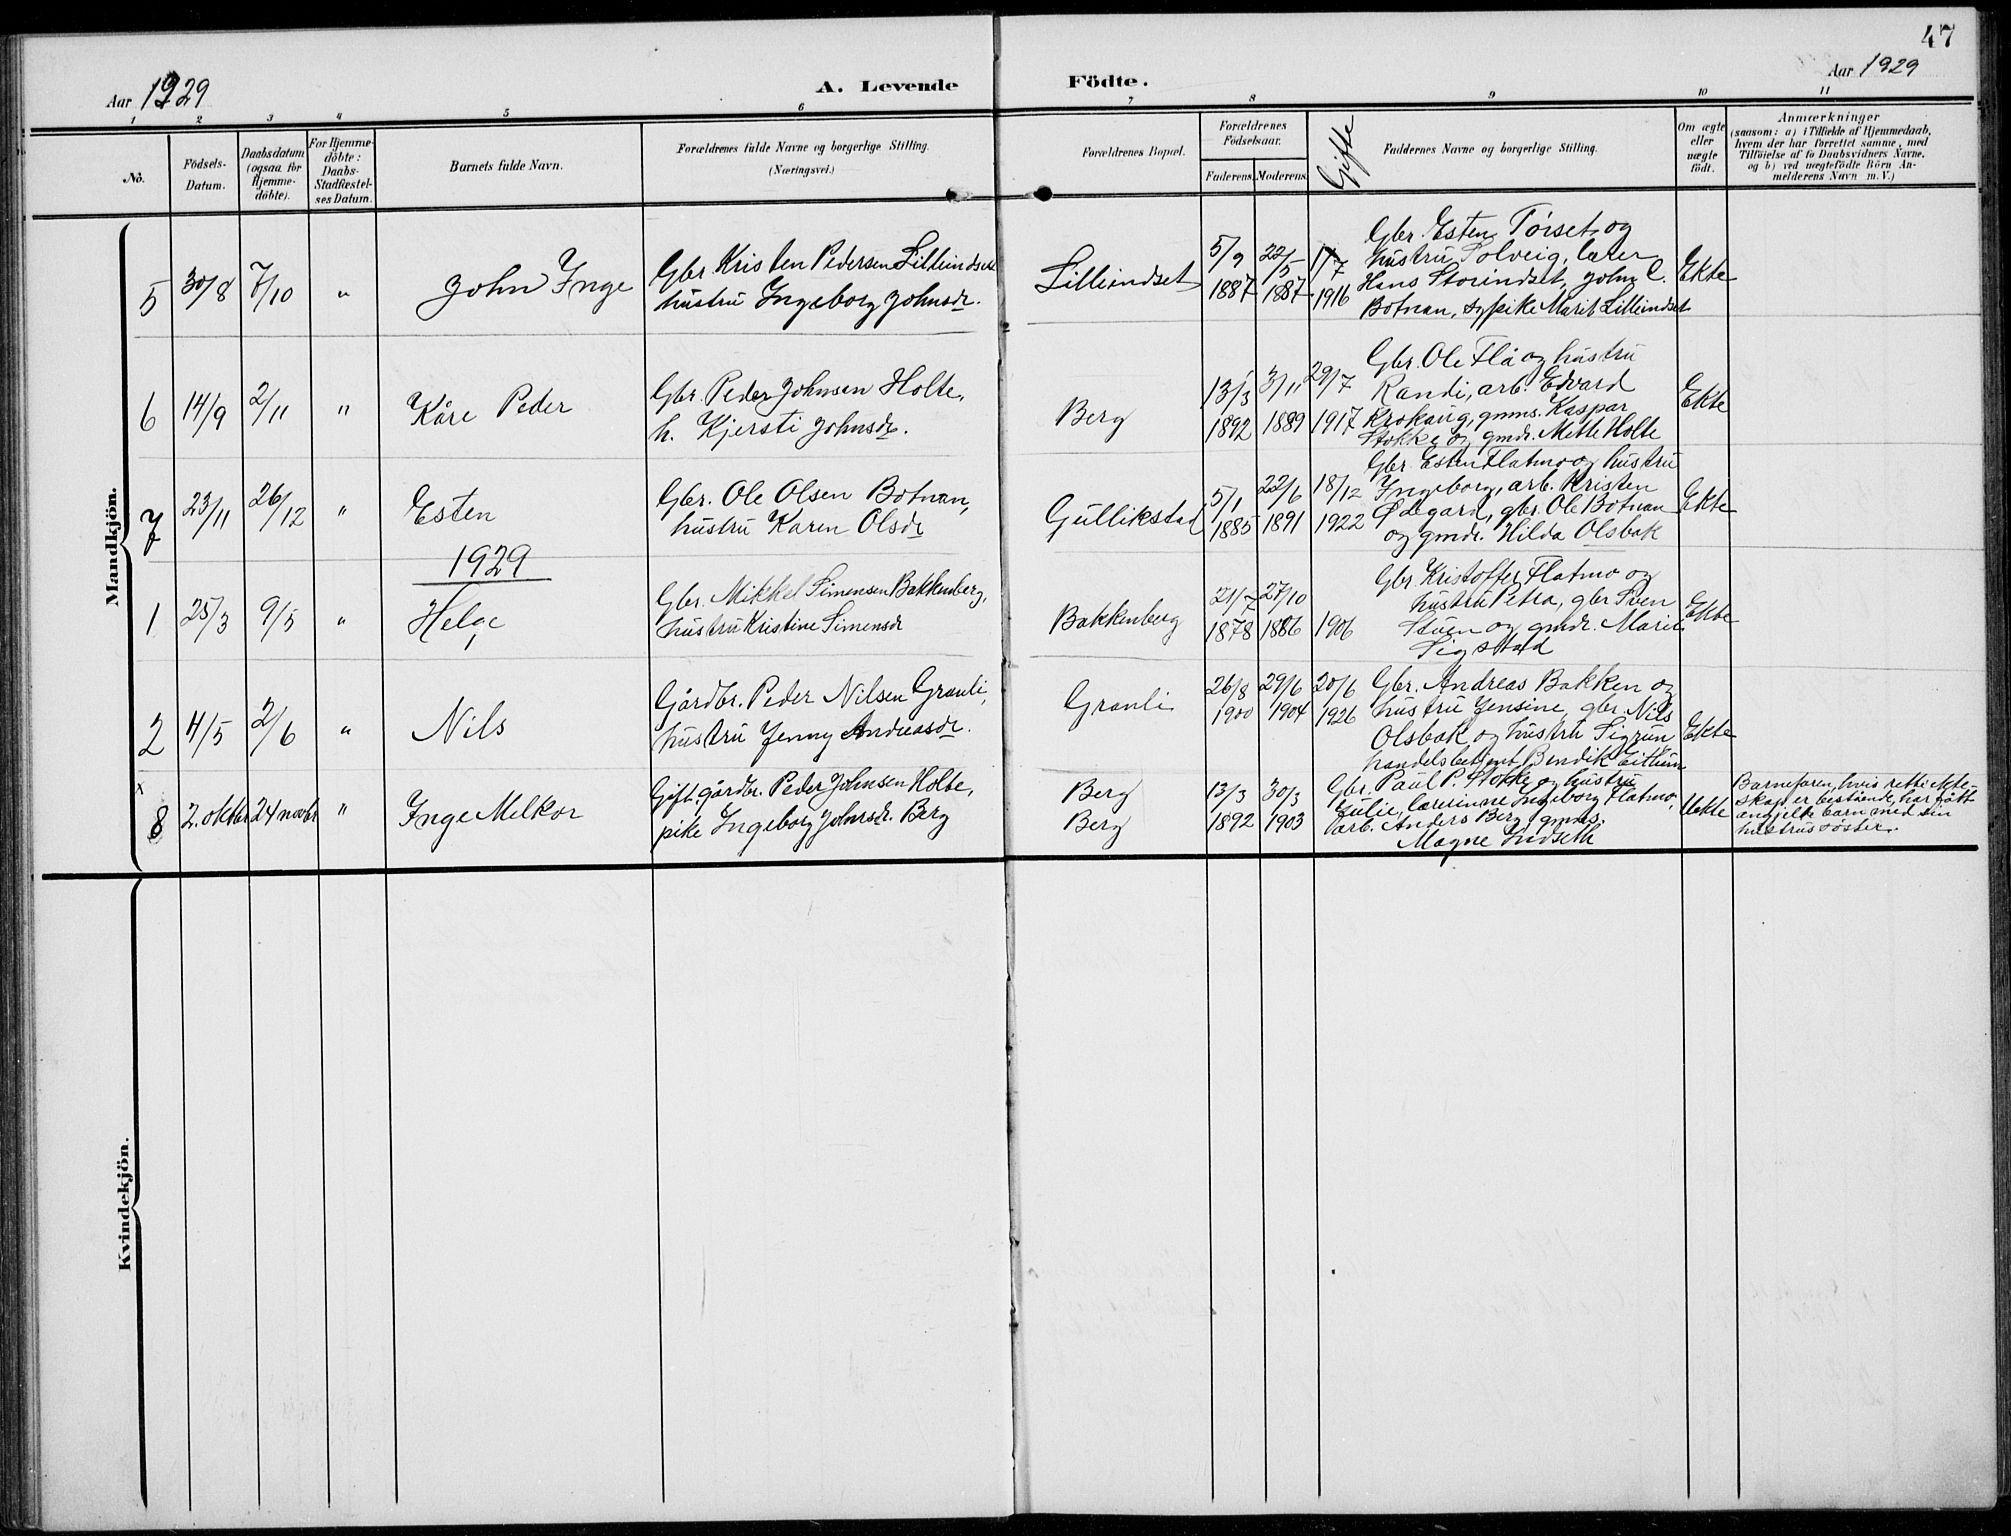 47
Aar 1929
A. Levende Födte.
Aar 1929
1 2 3 4 5 6 7 8 9 10 11
No.
Födsels-
Datum.
Daabsdatum
(ogsaa for
Hjemme-
döbte).
For Hjemme-
döbte:
Daabs-
Stadfæstel-
ses Datum.
Barnets fulde Navn.
Forældrenes fulde Navne og borgerlige Stilling.
(Næringsvei.)
Forældrenes Bopæl.
Forældrenes
Födselsaar.
Faderens. Moderens.
Gifte
Faddernes Navne og borgerlige Stilling.
Om ægte
eller
uægte
födt.
Anmærkninger
(saasom: a) i Tilfælde af Hjemmedaab,
hvem der har forrettet samme, med
Tilföielse af to Daabsvidners Navne,
og b) ved uægtefödte Börn An-
melderens Navn m. V.)
Mandkjön.
5 30/8 7/10 " John Inge
Gbr. Kristen Pedersen Lilleindset
hustru Ingeborg Johnsdr.
Lilleindset
5/9 1887
22/5 1887
1/7 1916
Gbr. Esten Törset og
hustru Solveig, lærer
Hans Storindset, John E.
Botnan, sypike Marit Lilleindset
Ekte
6 14/9 2/11 " Kåre Peder
Gbr. Peder Johnsen Holte,
h. Kjersti Johnsdr.
Berg
13/3 1892
3/11 1889
29/7 1917
Gbr. Ole Flå og hustru
Randi, arb. Edvard
Krokaug, gmms. Kaspar
Stokke og gmdr. Mette Holte
Ekte
7 23/11 26/12 " Esten
Gbr. Ole Olsen Botnan,
hustru Karen Olsdr
Gullikstad
5/1 1885
22/6 1891
18/12 1922
Gbr. Esten Flatmo og hustru
Ingeborg, arb. Kristen
Ødegard, gbr. Ole Botnan
og gmdr. Hilda Olsbak
Ekte
1929
1 25/3 9/5 " Helge
Gbr. Mikkel Simensen Bakkenberg,
hustru Kristine Simensdr
Bakkenberg
21/7 1878
27/10 1886
1906
Gbr. Kristoffer Flatmo og
hustru Petra, gbr Sven
Stuen og gmdr. Marit
Sigstad
Ekte
2 4/5 2/6 " Nils
Gårdbr. Peder Nilsen Granli,
hustru Jenny Andreasdr.
Granli
26/8 1900
29/6 1904
20/6 1926
Gbr. Andreas Bakken og
hustru Jensine, gbr. Nils
Olsbak og hustru Sigrun
handelsbetjent Bendik Eithun
Ekte
x
8 2. oktbr 24 novbr " Inge Melkor
Gift gårdbr. Peder Johnsen Holte,
pike Ingeborg Johnsdr. Berg
Berg
Berg
13/3 1892
30/3 1903
Gbr. Paul P. Stokke og hustru
Julie, lærerinne Ingeborg Flatmo,
arb. Anders Berg, gmms.
Magne Indseth
Uekte
Barnefaren, hvis rette ekte-
skap er bestående, har fått
angjeldte barn med sin
hustrus söster.
Kvindekjön.